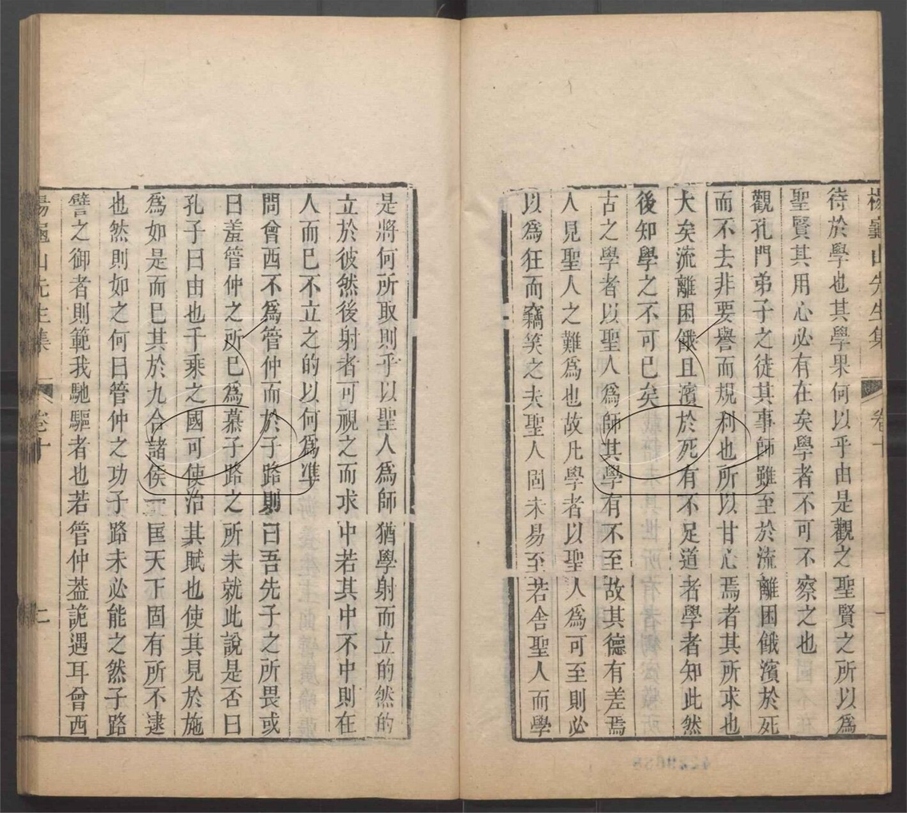 楊龜山先生集 卷十 一
待於學也其學果何以乎由是觀之聖賢之所以爲
聖賢其用心必有在矣學者不可不察之也
觀孔門弟子之徒其事師雖至於流離困餓濱於死
而不去非要譽而規利也所以甘心焉者其所求也
大矣流離困餓且濱於死有不足道者學者知此然
後知學之不可已矣
古之學者以聖人爲師其學有不至故其德有差焉
人見聖人之難爲也故凡學者以聖人爲可至則必
以爲狂而竊笑之夫聖人固未易至若舍聖人而學
是將何所取則乎以聖人爲師猶學射而立的然的
立於彼然後射者可視之而求中若其中不中則在
人而已不立之的以何爲準
問曾西不爲管仲而於子路則曰吾先子之所畏或
曰羞管仲之所已爲慕子路之所未就此說是否曰
孔子曰由也千乘之國可使治其賦也使其見於施
爲如是而已其於九合諸侯一匡天下固有所不逮
也然則如之何曰管仲之功子路未必能之然子路
譬之御者則範我馳驅者也若管仲葢詭遇耳曾西
楊龜山先生集 卷十 二